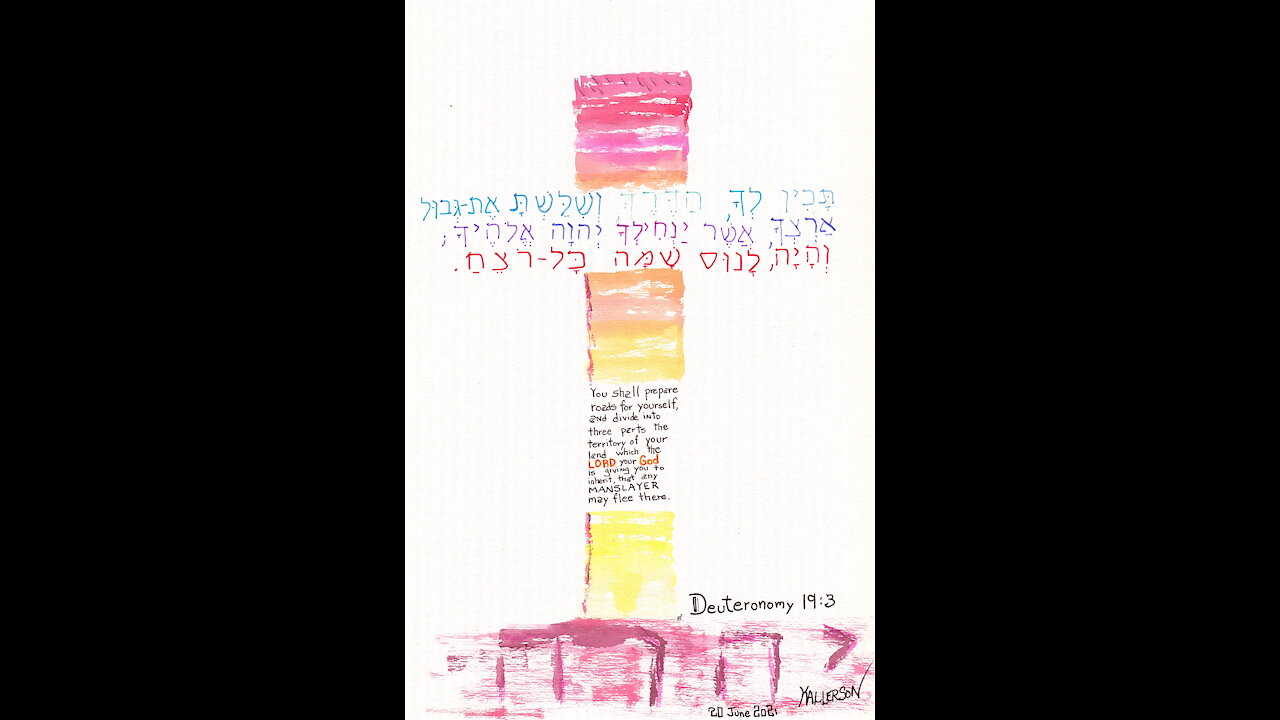 תָּכִין לְךָ, הַדֶּרֶךְ, וְשִׁלַּשְׁתָּ אֶת-גְּבוּל
אַרְצְךָ, אֲשֶׁר יַנְחִילְךָ יְהוָה אֱלֹהֶיךָ;
וְהָיָה, לָנוּס שָׁמָּה כָּל-רֹצֵחַ.
You shall prepare
roads for yourself,
and divide into
three parts the
territory of your
land which the
LORD your God
is giving you to
inherit, that any
MANSLAYER
may flee there.
Deuteronomy 19:3
יהוה
20 June 2021